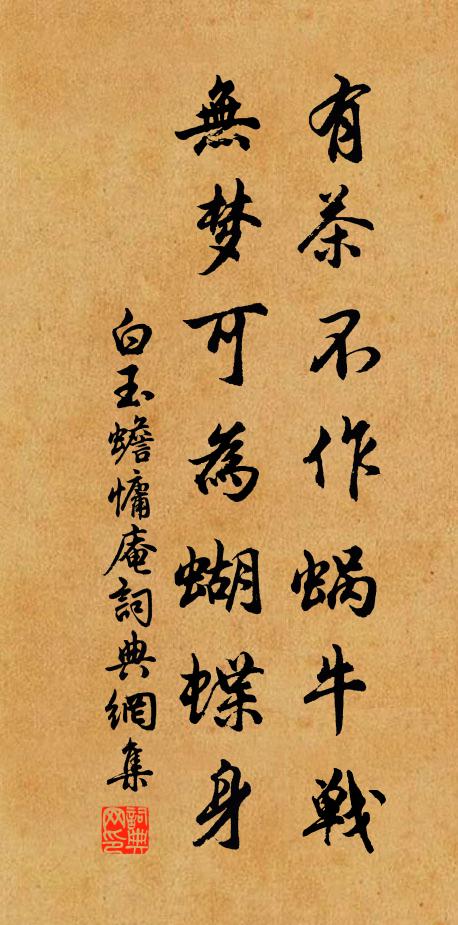 有茶不作蜗牛戦
無梦可為蝴蝶身
白玉蟾慵庵詞典網集
詞典网印